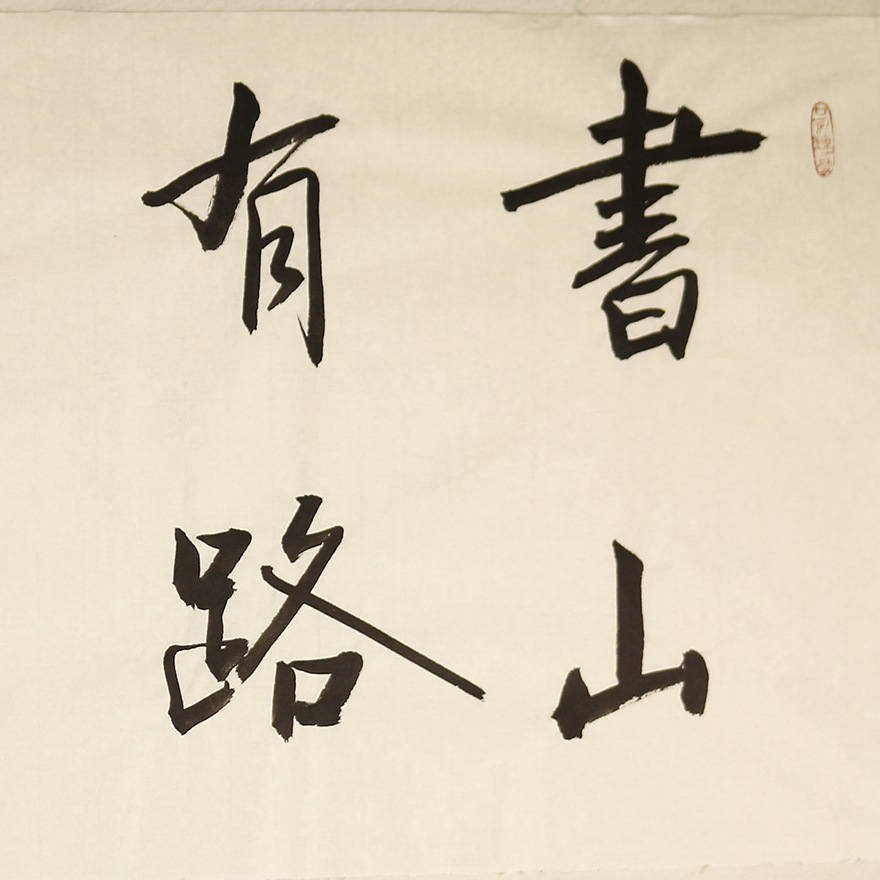 書山
有路